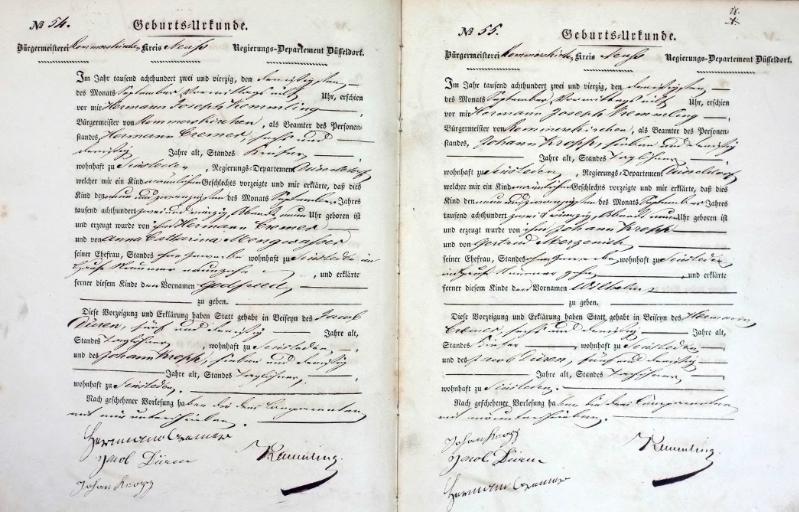 № 54.
Geburts-Urkunde.
Bürgermeisterei Rommerskirchen Kreis Neuss Regierungs-Departement Düsseldorf.
Im Jahr tausend achthundert zwei und vierzig, den dreißigsten
des Monats September Vormittags acht Uhr, erschien
vor mir Hermann Joseph Kemmling
Bürgermeister von Rommerskirchen, als Beamter des Personen-
standes, Hermann Cremer, sechs und
dreißig Jahre alt, Standes
wohnhaft zu, Regierungs-Departement Düsseldorf
welcher mir ein Kind männlichen Geschlechts vorzeigte und mir erklärte, daß dies
Kind den neun und zwanzigsten des Monats September Jahres
tausend achthundert zwei und vierzig, Abends neun Uhr geboren ist
und erzeugt wurde von ihm Hermann Cremer
und von Anna Catharina
seiner Ehefrau, Standes ohne Gewerbe wohnhaft zu
Haus Nummer, und erklärte
ferner diesem Kinde den Vornamen Gottfried
zu geben.
Diese Vorzeigung und Erklärung haben Statt gehabt in Beiseyn des Jacob
Düren, fünf und dreißig Jahre alt,
Standes Taglöhner, wohnhaft zu
und des Johann Kropp, sieben und dreißig
Jahre alt, Standes Taglöhner,
wohnhaft zu
Nach geschehener Vorlesung haben die drei Comparenten
mit mir unterschrieben.
Hermann Cremer
Jacob Düren
Kemmling
Johan Kropp
№ 55.
Geburts-Urkunde.
Bürgermeisterei Rommerskirchen Kreis Neuss Regierungs-Departement Düsseldorf.
Im Jahr tausend achthundert zwei und vierzig, den dreißigsten
des Monats September Vormittags acht Uhr, erschien
vor mir Hermann Joseph Kemmling
Bürgermeister von Rommerskirchen, als Beamter des Personen-
standes, Johann Kropp, sieben und dreißig
Jahre alt, Standes Taglöhner
wohnhaft zu, Regierungs-Departement Düsseldorf
welcher mir ein Kind männlichen Geschlechts vorzeigte und mir erklärte, daß dies
Kind den neun und zwanzigsten des Monats September Jahres
tausend achthundert zwei und vierzig, Abends neun Uhr geboren ist
und erzeugt wurde von ihm Johann Kropp
und von Gertrud
seiner Ehefrau, Standes ohne Gewerbe, wohnhaft zu
Haus Nummer, und erklärte
ferner diesem Kinde den Vornamen Wilhelm
zu geben.
Diese Vorzeigung und Erklärung haben Statt gehabt in Beiseyn des Hermann
Cremer, sechs und dreißig Jahre alt,
Standes, wohnhaft zu
und des Jacob Düren, fünf und dreißig
Jahre alt, Standes Taglöhner,
wohnhaft zu
Nach geschehener Vorlesung haben die drei Comparenten
mit mir unterschrieben.
Johan Kropp
Jacob Düren
Kemmling
Hermann Cremer